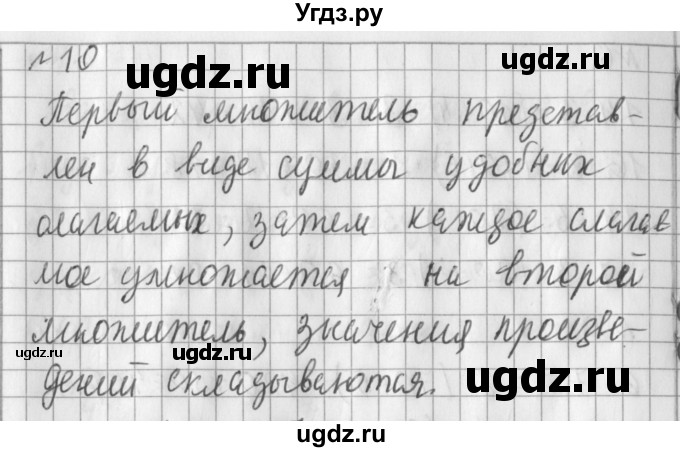 Угдз.ру
№10
ugdz.ru
ugdz.ru
Первый множитель представ-
лен в виде суммы удобных
слагаемых, затем каждое слагае
мое умножается на второй
множитель, значения произве-
ugdz.ru
ugdz.ru
дений складываются.
ugdz.ru
ugdz.ru
ugdz.ru